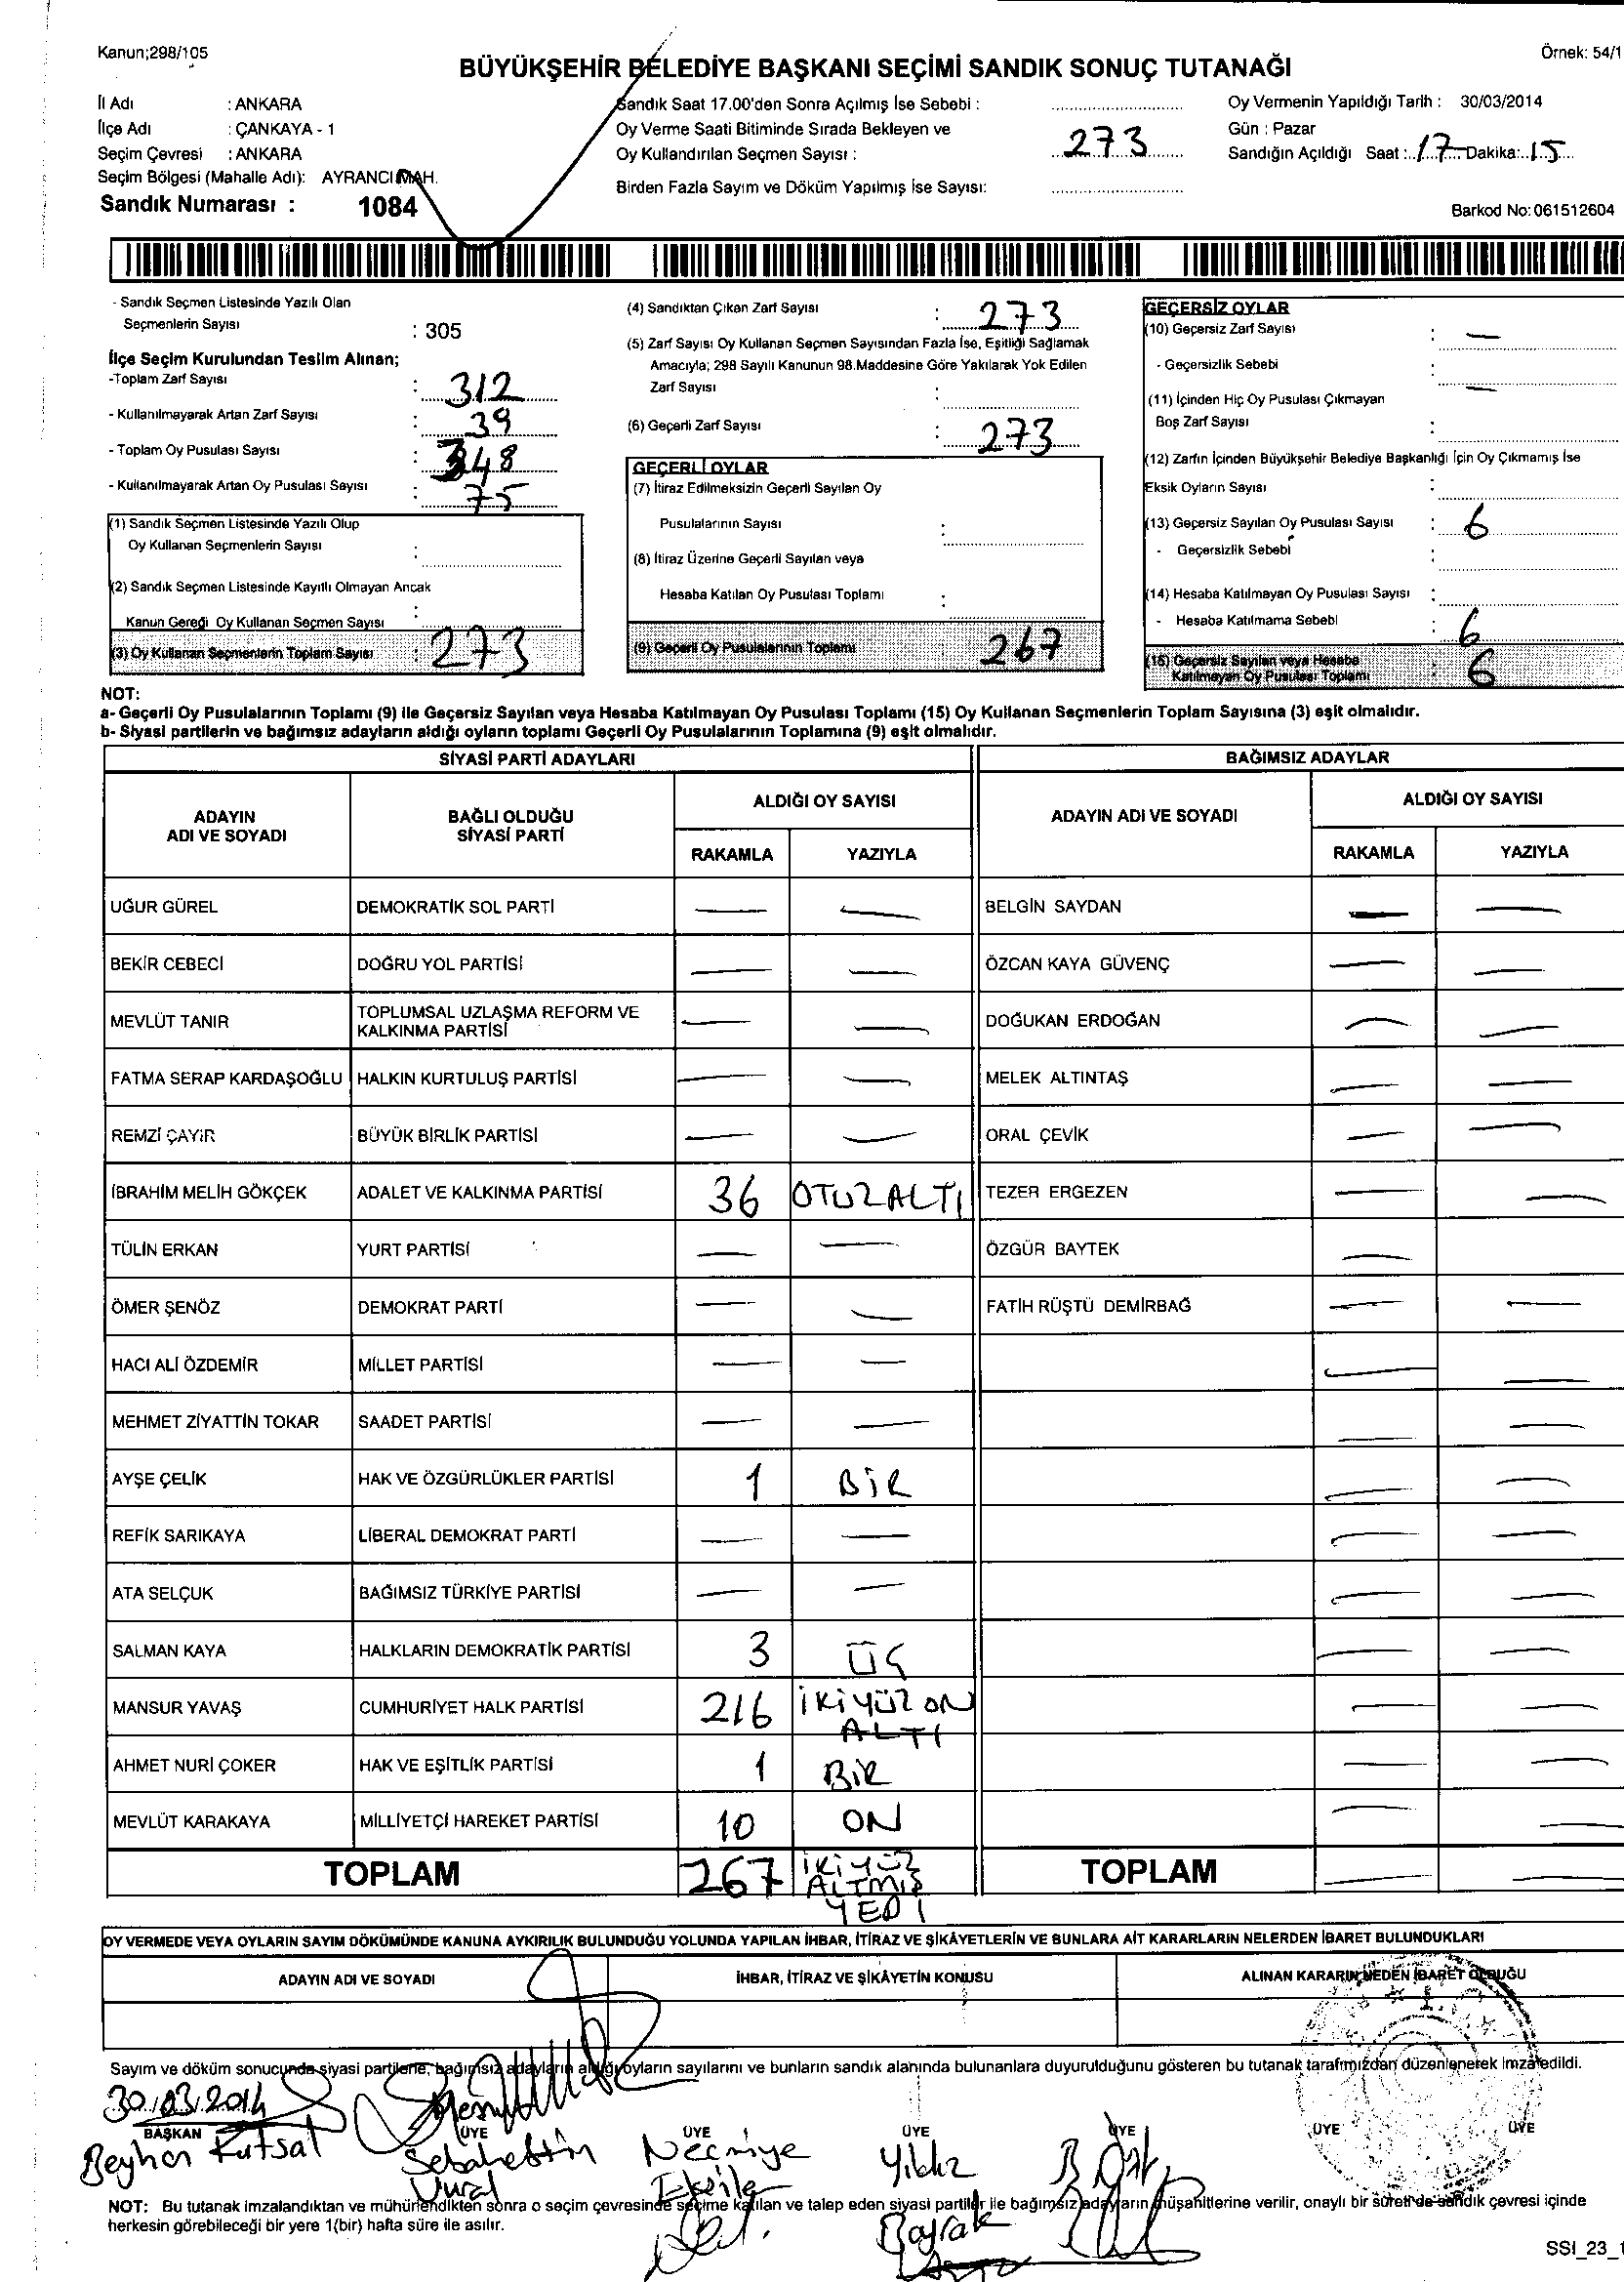 Kanun;298/105
Örnek: 54/1
BÜYÜKŞEHİR BELEDİYE BAŞKANI SEÇİMİ SANDIK SONUÇ TUTANAĞI
İl Adı : ANKARA
İlçe Adı : ÇANKAYA - 1
Seçim Çevresi : ANKARA
Seçim Bölgesi (Mahalle Adı): AYRANCI MAH.
Sandık Numarası : 1084
Sandık Saat 17.00'den Sonra Açılmış İse Sebebi :
Oy Verme Saati Bitiminde Sırada Bekleyen ve
Oy Kullandırılan Seçmen Sayısı : 273
Birden Fazla Sayım ve Döküm Yapılmış İse Sayısı:
Oy Vermenin Yapıldığı Tarih : 30/03/2014
Gün : Pazar
Sandığın Açıldığı Saat :..17...Dakika:..15...
Barkod No:061512604
- Sandık Seçmen Listesinde Yazılı Olan
Seçmenlerin Sayısı : 305
İlçe Seçim Kurulundan Teslim Alınan;
-Toplam Zarf Sayısı : 312
- Kullanılmayarak Artan Zarf Sayısı : 39
- Toplam Oy Pusulası Sayısı : 348
- Kullanılmayarak Artan Oy Pusulası Sayısı : 75
(1) Sandık Seçmen Listesinde Yazılı Olup
Oy Kullanan Seçmenlerin Sayısı :
(2) Sandık Seçmen Listesinde Kayıtlı Olmayan Ancak
Kanun Gereği Oy Kullanan Seçmen Sayısı :
(3) Oy Kullanan Seçmenlerin Toplam Sayısı : 273
(4) Sandıktan Çıkan Zarf Sayısı : 273
(5) Zarf Sayısı Oy Kullanan Seçmen Sayısından Fazla İse, Eşitliği Sağlamak
Amacıyla; 298 Sayılı Kanunun 98.Maddesine Göre Yakılarak Yok Edilen
Zarf Sayısı :
(6) Geçerli Zarf Sayısı : 273
GEÇERLİ OYLAR
(7) İtiraz Edilmeksizin Geçerli Sayılan Oy
Pusulalarının Sayısı :
(8) İtiraz Üzerine Geçerli Sayılan veya
Hesaba Katılan Oy Pusulası Toplamı :
(9) Geçerli Oy Pusulalarının Toplamı 267
GEÇERSİZ OYLAR
(10) Geçersiz Zarf Sayısı : —
- Geçersizlik Sebebi :
(11) İçinden Hiç Oy Pusulası Çıkmayan —
Boş Zarf Sayısı :
(12) Zarfın İçinden Büyükşehir Belediye Başkanlığı İçin Oy Çıkmamış İse
Eksik Oyların Sayısı :
(13) Geçersiz Sayılan Oy Pusulası Sayısı : 6
- Geçersizlik Sebebi :
(14) Hesaba Katılmayan Oy Pusulası Sayısı :
- Hesaba Katılmama Sebebi : 6
(15) Geçersiz Sayılan veya Hesaba
Katılmayan Oy Pusulası Toplamı : 6
NOT:
a- Geçerli Oy Pusulalarının Toplamı (9) ile Geçersiz Sayılan veya Hesaba Katılmayan Oy Pusulası Toplamı (15) Oy Kullanan Seçmenlerin Toplam Sayısına (3) eşit olmalıdır.
b- Siyasi partilerin ve bağımsız adayların aldığı oyların toplamı Geçerli Oy Pusulalarının Toplamına (9) eşit olmalıdır.
SİYASİ PARTİ ADAYLARI
BAĞIMSIZ ADAYLAR
ADAYIN ADI VE SOYADI
BAĞLI OLDUĞU SİYASİ PARTİ
ALDIĞI OY SAYISI
RAKAMLA YAZIYLA
ADAYIN ADI VE SOYADI
ALDIĞI OY SAYISI
RAKAMLA YAZIYLA
UĞUR GÜREL DEMOKRATİK SOL PARTİ — — BELGİN SAYDAN — —
BEKİR CEBECİ DOĞRU YOL PARTİSİ — — ÖZCAN KAYA GÜVENÇ — —
MEVLÜT TANIR TOPLUMSAL UZLAŞMA REFORM VE KALKINMA PARTİSİ — — DOĞUKAN ERDOĞAN — —
FATMA SERAP KARDAŞOĞLU HALKIN KURTULUŞ PARTİSİ — — MELEK ALTINTAŞ — —
REMZİ ÇAYIR BÜYÜK BİRLİK PARTİSİ — — ORAL ÇEVİK — —
İBRAHİM MELİH GÖKÇEK ADALET VE KALKINMA PARTİSİ 36 OTUZALTI TEZER ERGEZEN — —
TÜLİN ERKAN YURT PARTİSİ — — ÖZGÜR BAYTEK —
ÖMER ŞENÖZ DEMOKRAT PARTİ — — FATİH RÜŞTÜ DEMİRBAĞ — —
HACI ALİ ÖZDEMİR MİLLET PARTİSİ — — — —
MEHMET ZİYATTİN TOKAR SAADET PARTİSİ — — — —
AYŞE ÇELİK HAK VE ÖZGÜRLÜKLER PARTİSİ 1 BİR — —
REFİK SARIKAYA LİBERAL DEMOKRAT PARTİ — — — —
ATA SELÇUK BAĞIMSIZ TÜRKİYE PARTİSİ — — — —
SALMAN KAYA HALKLARIN DEMOKRATİK PARTİSİ 3 ÜÇ — —
MANSUR YAVAŞ CUMHURİYET HALK PARTİSİ 216 İKİYÜZ ON ALTI — —
AHMET NURİ ÇOKER HAK VE EŞİTLİK PARTİSİ 1 BİR — —
MEVLÜT KARAKAYA MİLLİYETÇİ HAREKET PARTİSİ 10 ON — —
TOPLAM 267 İKİYÜZ ALTMIŞ YEDİ TOPLAM — —
OY VERMEDE VEYA OYLARIN SAYIM DÖKÜMÜNDE KANUNA AYKIRILIK BULUNDUĞU YOLUNDA YAPILAN İHBAR, İTİRAZ VE ŞİKÂYETLERİN VE BUNLARA AİT KARARLARIN NELERDEN İBARET BULUNDUKLARI
ADAYIN ADI VE SOYADI İHBAR, İTİRAZ VE ŞİKÂYETİN KONUSU ALINAN KARARIN NEDEN İBARET OLDUĞU
Sayım ve döküm sonucunda siyasi partilerle, bağımsız adayların aldığı oyların sayılarını ve bunların sandık alanında bulunanlara duyurulduğunu gösteren bu tutanak tarafımızdan düzenlenerek imza edildi.
30.03.2014
BAŞKAN ÜYE ÜYE ÜYE ÜYE ÜYE ÜYE
Beyhan Kutsal Sebahettin Necmiye Yıldız
Vural
Bayrak
NOT: Bu tutanak imzalandıktan ve mühürlendikten sonra o seçim çevresinde seçime katılan ve talep eden siyasi partiler ile bağımsız adayların müşahitlerine verilir, onaylı bir sureti de sandık çevresi içinde
herkesin görebileceği bir yere 1(bir) hafta süre ile asılır.
SSI_23_1